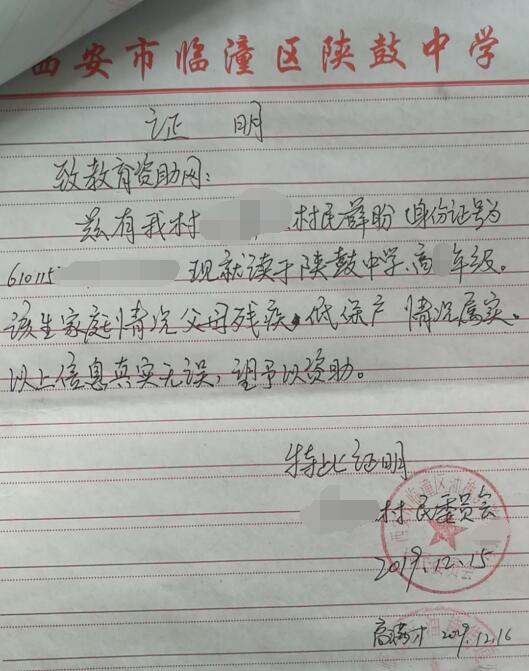 西安市临潼区陕鼓中学
证 明
致教育资助网：
兹有我村 村民薛盼（身份证号为
610115 现就读于陕鼓中学、高 年级。
该生家庭情况父母残疾、低保户 情况属实。
以上信息真实无误，望予以资助。
特此证明
村民委员会
2019.12.15
2019.12.16